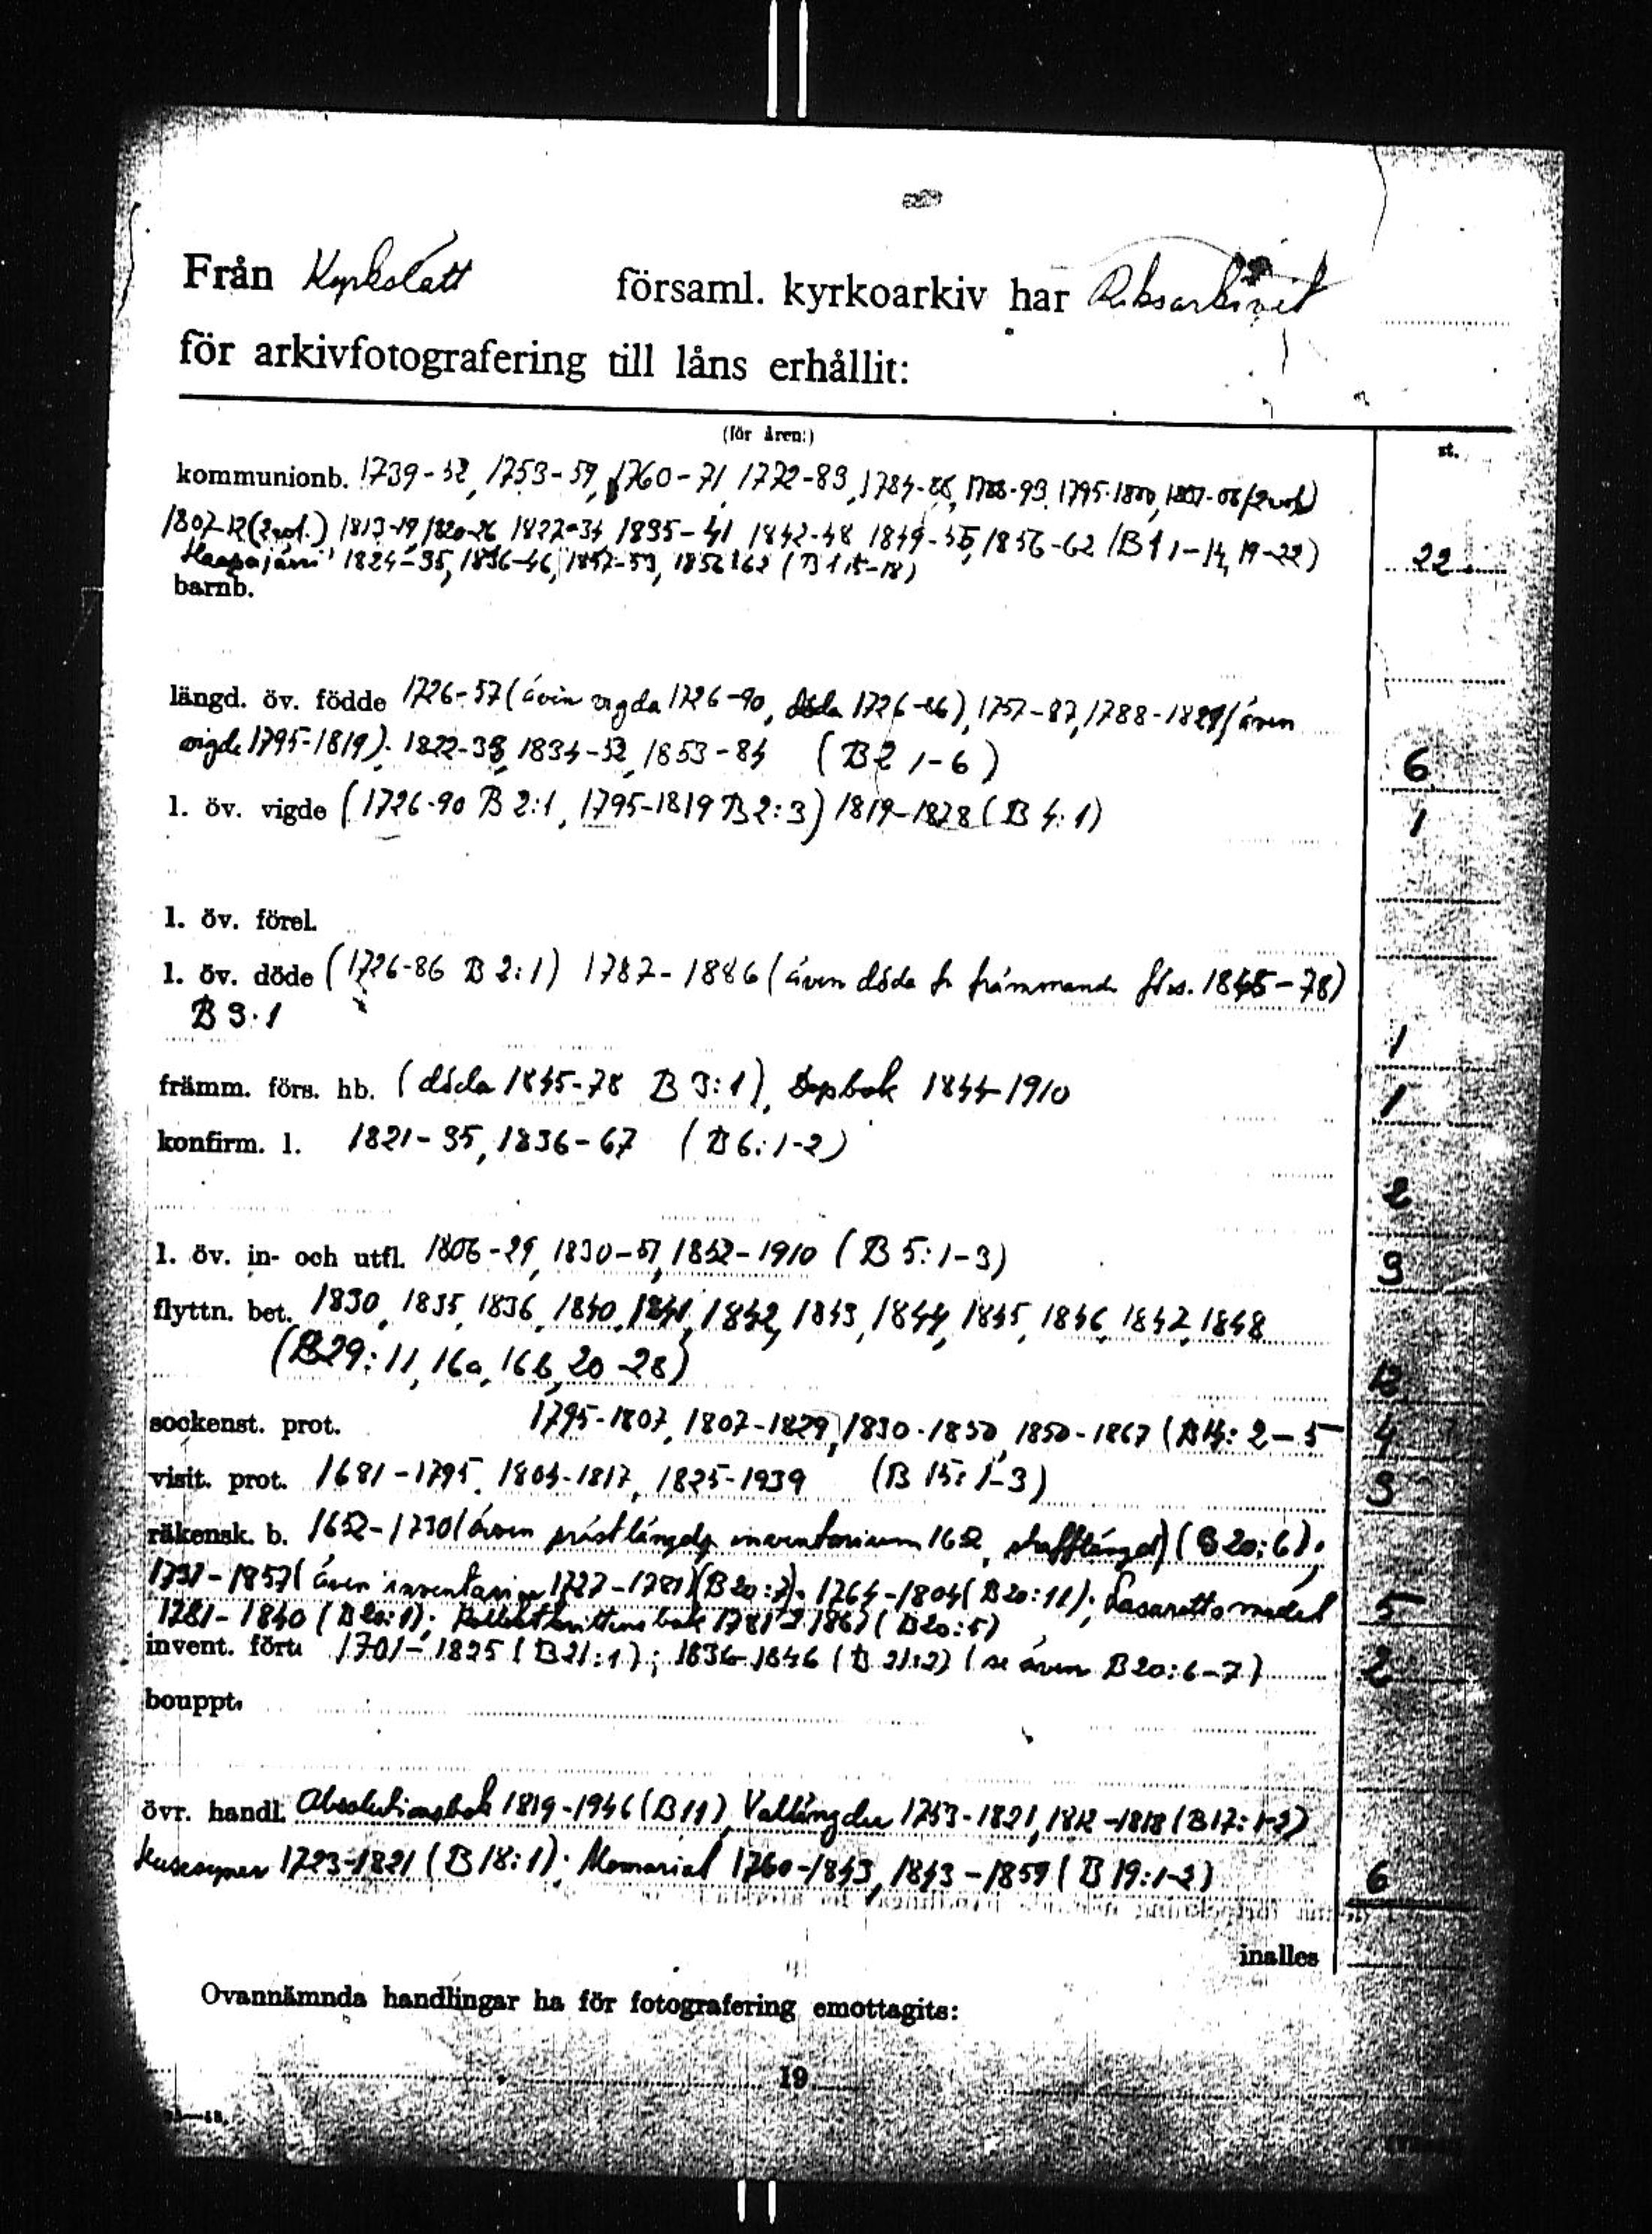 Från Kyrkslätt församl. kyrkoarkiv har Riksarkivet
för arkivfotografering till låns erhållit:
(för åren:) st.
kommunionb. 1739-52, 1753-59, 1760-71, 1772-83, 1784-88, 1788-93, 1795-1800, 1801-06 (2 vol.)
1807-12 (2 vol.) 1813-19, 1820-26, 1827-34, 1835-41 1842-48 1849-55, 1856-62 (B 1 1-14, 19-22) 22
Haapajärvi 1824-35, 1836-46, 1847-53, 1856-62 (B 1 15-18)
barnb.
längd. öv. födde 1726-57 (även vigda 1726-90, döda 1726-86), 1757-87, 1788-1821 (även
vigde 1795-1819). 1822-33, 1834-52, 1853-84 (B 2 1-6) 6
l. öv. vigde (1726-90 B 2:1, 1795-1819 B 2:3) 1819-1878 (B 4:1) 1
l. öv. förel.
l. öv. döde (1726-86 B 2:1) 1787-1886 (även döda fr. främmande förs. 1845-78)
B 3:1 1
främm. förs. hb. (döda 1845-78 B 3:1), Dopbok 1844-1910 1
konfirm. l. 1821-35, 1836-67 (B 6:1-2)
2
l. öv. in- och utfl. 1806-29, 1830-51, 1852-1910 (B 5:1-3) 3
flyttn. bet. 1830, 1835, 1836, 1840, 1841, 1842, 1843, 1844, 1845, 1846, 1847, 1848
(B29: 11, 16a, 16b, 20-28) 12
sockenst. prot. 1795-1807, 1807-1829, 1830-1850, 1850-1867 (B 14: 2-5 4
visit. prot. 1681-1795, 1804-1817, 1825-1939 (B 15: 1-3) 3
räkensk. b. 1652-1730 (även prästlängd, inventarium 1652, skafflängd) (B 20:6);
1731-1857 (även inventarium 1727-1781) (B 20:7). 1764-1804 (B 20:11); Lasarettsmedel 5
1781-1840 (B 20:1); Kollektkvittensbok 1781-1867 (B 20:5)
invent. fört. 1701-1825 (B 21:1); 1836-1846 (B 21:2) (se även B 20:6-7) 2
bouppt.
övr. handl. Absolutionsbok 1819-1946 (B 11), Vallängder 1753-1821, 1812-1818 (B 17:1-2)
Husesyner 1723-1821 (B 18:1); Memorial 1760-1843, 1843-1859 (B 19:1-2) 6
inalles
Ovannämnda handlingar ha för fotografering emottagits:
19